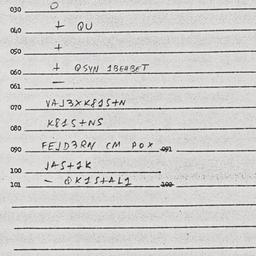 030 O
040 + QU
050 +
060 + QSYN 1BEHBET
061 —
070 VAJ3XK81S+N
080 K81S+NS
090 FEJD3RN CM POX 091
100 JAS+1K
101 — QK1S+AL1 102